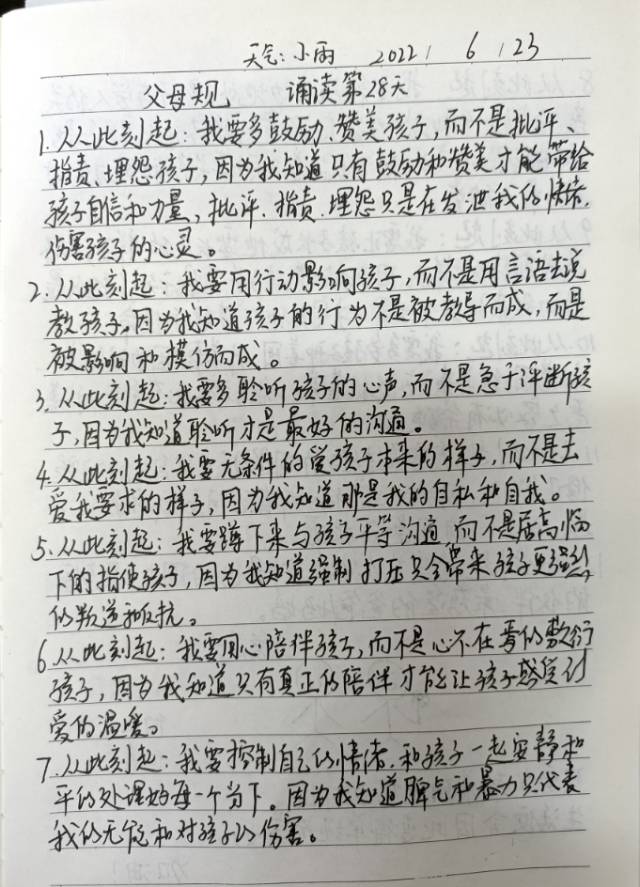 天气:小雨 2022 / 6 / 23
父母规 诵读第28天
1.从此刻起:我要多鼓励、赞美孩子,而不是批评、
指责、埋怨孩子,因为我知道只有鼓励和赞美才能带给
孩子自信和力量,批评、指责、埋怨只是在发泄我的情绪,
伤害孩子的心灵。
2.从此刻起:我要用行动影响孩子,而不是用言语去说
教孩子,因为我知道孩子的行为不是被教导而成,而是
被影响和模仿而成。
3.从此刻起:我要多聆听孩子的心声,而不是急于评断孩
子,因为我知道聆听才是最好的沟通。
4.从此刻起:我要无条件的爱孩子本来的样子,而不是去
爱我要求的样子,因为我知道那是我的自私和自我。
5.从此刻起:我要蹲下来与孩子平等沟通,而不是居高临
下的指使孩子,因为我知道强制打压只会带来孩子更强烈
的叛逆和反抗。
6.从此刻起:我要用心陪伴孩子,而不是心不在焉的敷衍
孩子,因为我知道只有真正的陪伴才能让孩子感受到
爱的温暖。
7.从此刻起:我要控制自己的情绪,和孩子一起安静和
平的处理好每一个当下。因为我知道脾气和暴力只代表
我的无能和对孩子的伤害。